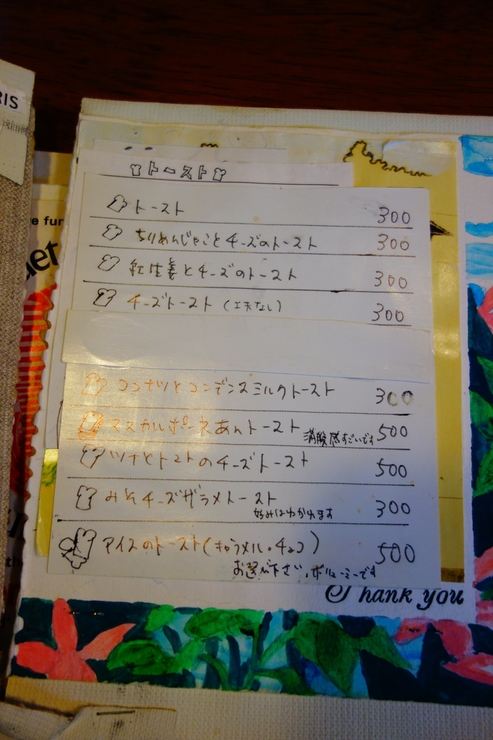 RIS
トースト
トースト 300
ちりめんじゃことチーズのトースト 300
紅生姜とチーズのトースト 300
チーズトースト (工夫なし) 300
ココナツとコンデンスミルクトースト 300
マスカルポーネあんトースト 満酸感すごいです 500
ツナとトマトのチーズトースト 500
みそチーズザラメトースト 300
好みはわかれます
アイスのトースト(キャラメル・チョコ) 500
お選び下さい。ボリューミーです
Thank you